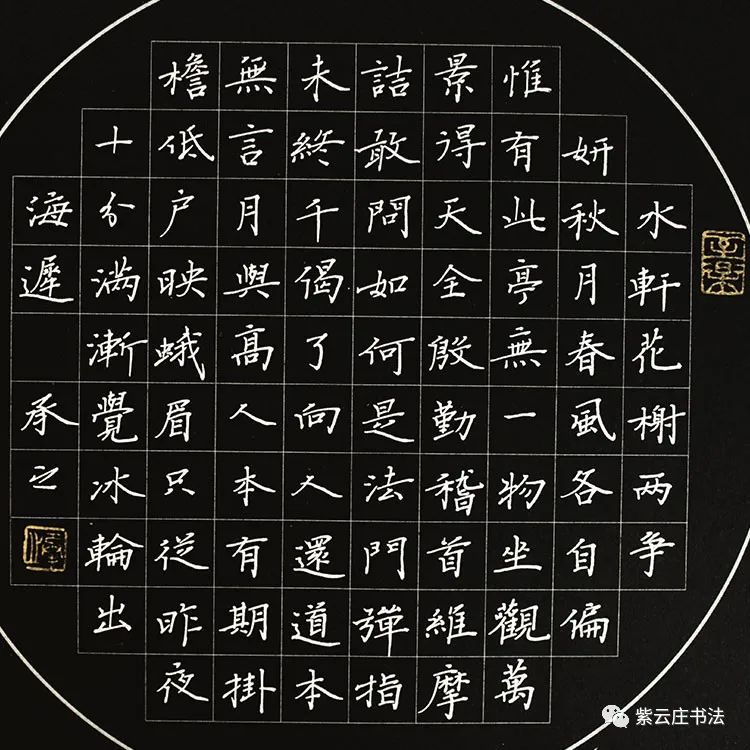 水軒花榭两争
妍秋月春風各自偏
惟有此亭無一物坐觀萬
景得天全殷勤稽首維摩
詰敢問如何是法門彈指
未終千偈了向人還道本
無言月與高人本有期掛
檐低户映蛾眉只從昨夜
十分满漸覺冰輪出
海遲 承之
紫云庄书法